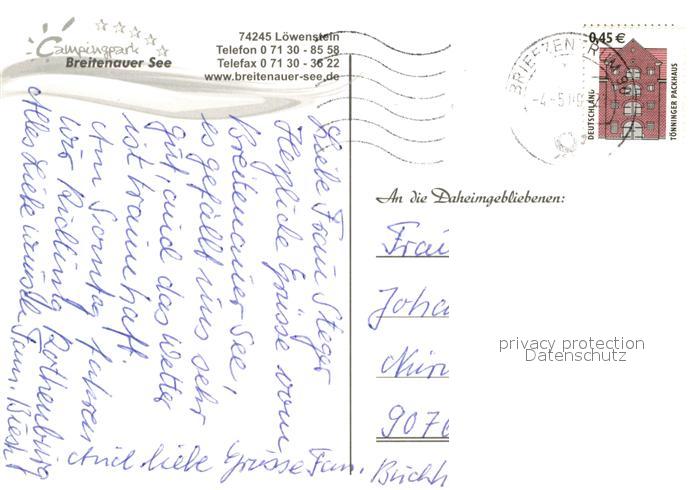 Campingpark
Breitenauer See
74245 Löwenstein
Telefon 0 71 30 - 85 58
Telefax 0 71 30 - 36 22
www.breitenauer-see.de
Liebe Frau Steger
Herzliche Grüsse vom
Breitenauer See,
es gefällt uns sehr
gut, und das Wetter
ist traumhaft.
Am Sonntag fahren
wir Richtung Rothenburg
Alles Liebe wünscht Fam.
Auch liebe Grüsse Fam.
BRIEFZENTRUM 90
0,45 €
DEUTSCHLAND
TÖNNINGER PACKHAUS
An die Daheimgebliebenen:
Frau
Joha
Nürn
9076
privacy protection
Datenschutz